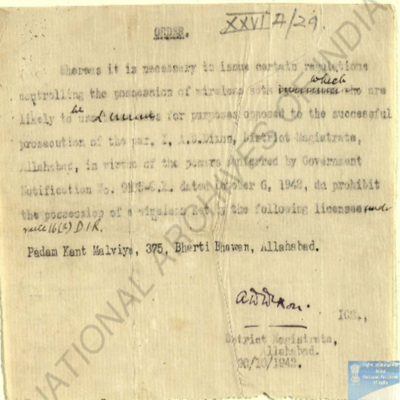 ORDER.
XXVI A/29
Whereas it is necessary to issue certain regulations
controlling the possession of wireless sets which are
likely to be used for purposes opposed to the successful
prosecution of the war, I, A.W. Dixon, District Magistrate,
Allahabad, in virtue of the powers conferred by Government
Notification No. dated October 6, 1942, do prohibit
the possession of a wireless set by the following licensee under
rule D.I.R.
Padam Kant Malviya, 375, Bharti Bhawan, Allahabad.
ICS.,
District Magistrate,
Allahabad.
30/10/1942.
NATIONAL ARCHIVES OF INDIA